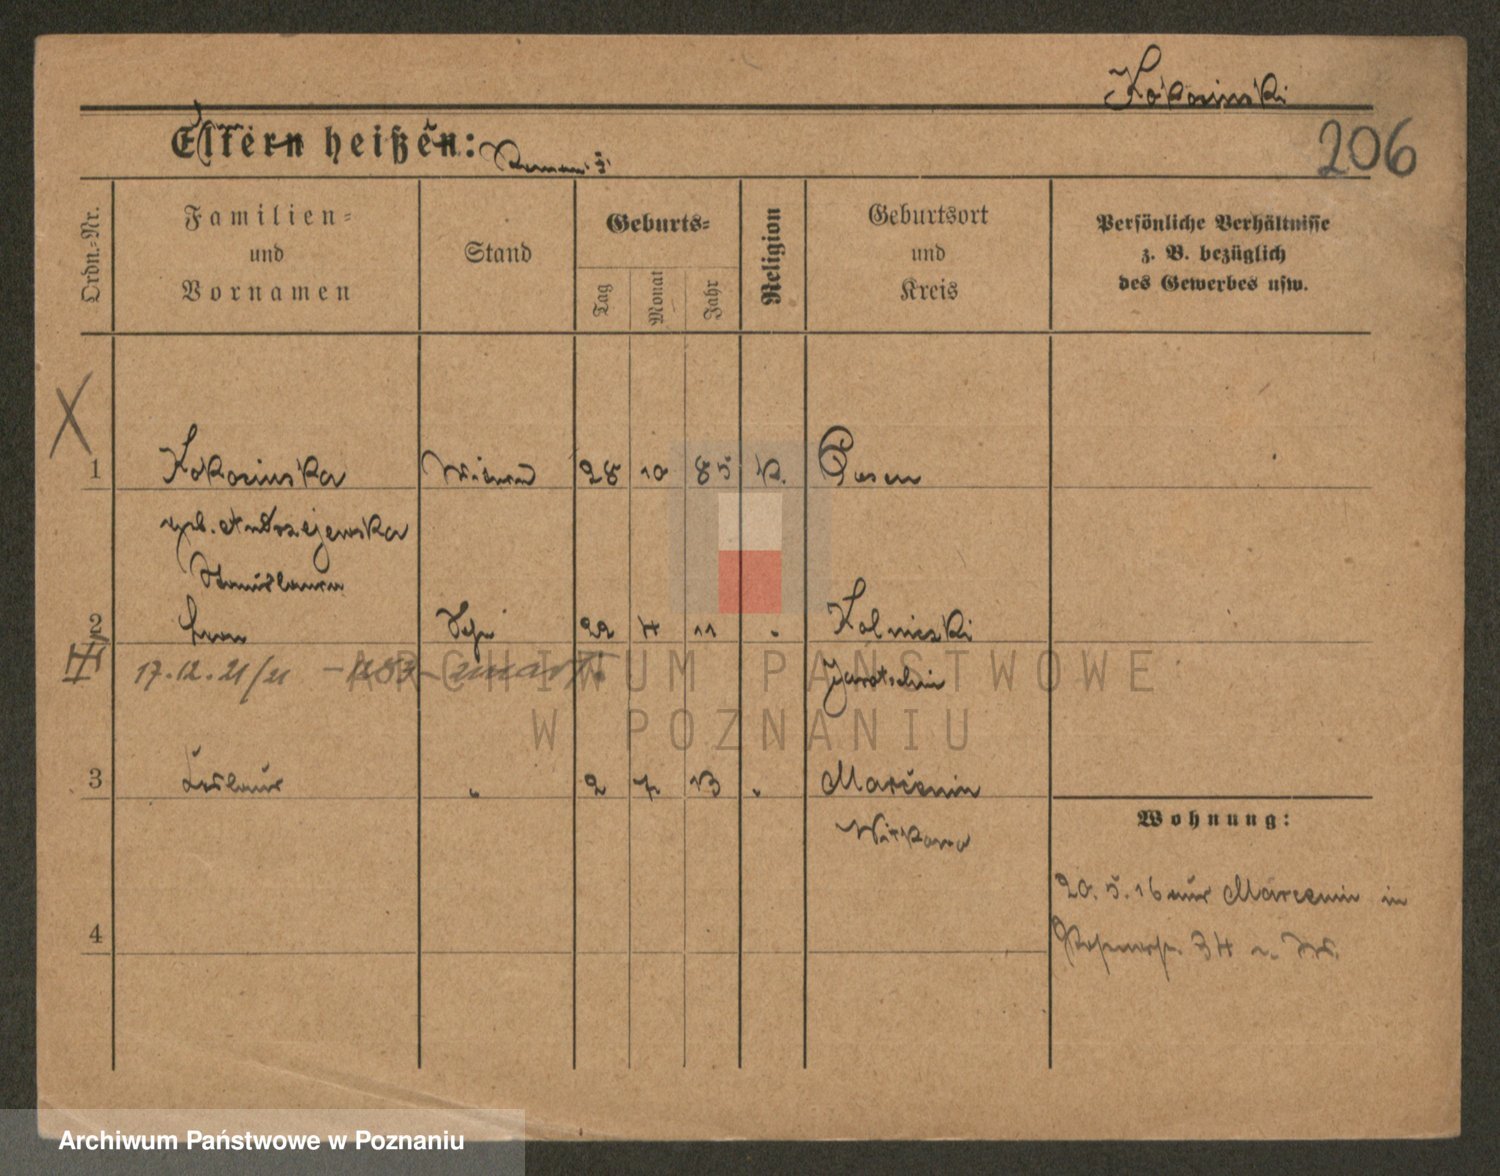 Kokosinski
Eltern heißen:
206
Ordn.-Nr.
Familien-
und
Vornamen
Stand
Geburts-
Tag
Monat
Jahr
Religion
Geburtsort
und
Kreis
Persönliche Verhältnisse
z. B. bezüglich
des Gewerbes usw.
1 Kokosinska 28 10 85 k. Posen
geb. Andrzejewska
Stanislawa
2 22 4 11 "
17.12.21/21 - 1283 -
Jarotschin
3 " 2 7 13 " Marcenin
Witkowo
Wohnung:
20. 5. 16 aus Marcenin in
34
4
ARCHIWUM PAŃSTWOWE
W POZNANIU
Archiwum Państwowe w Poznaniu